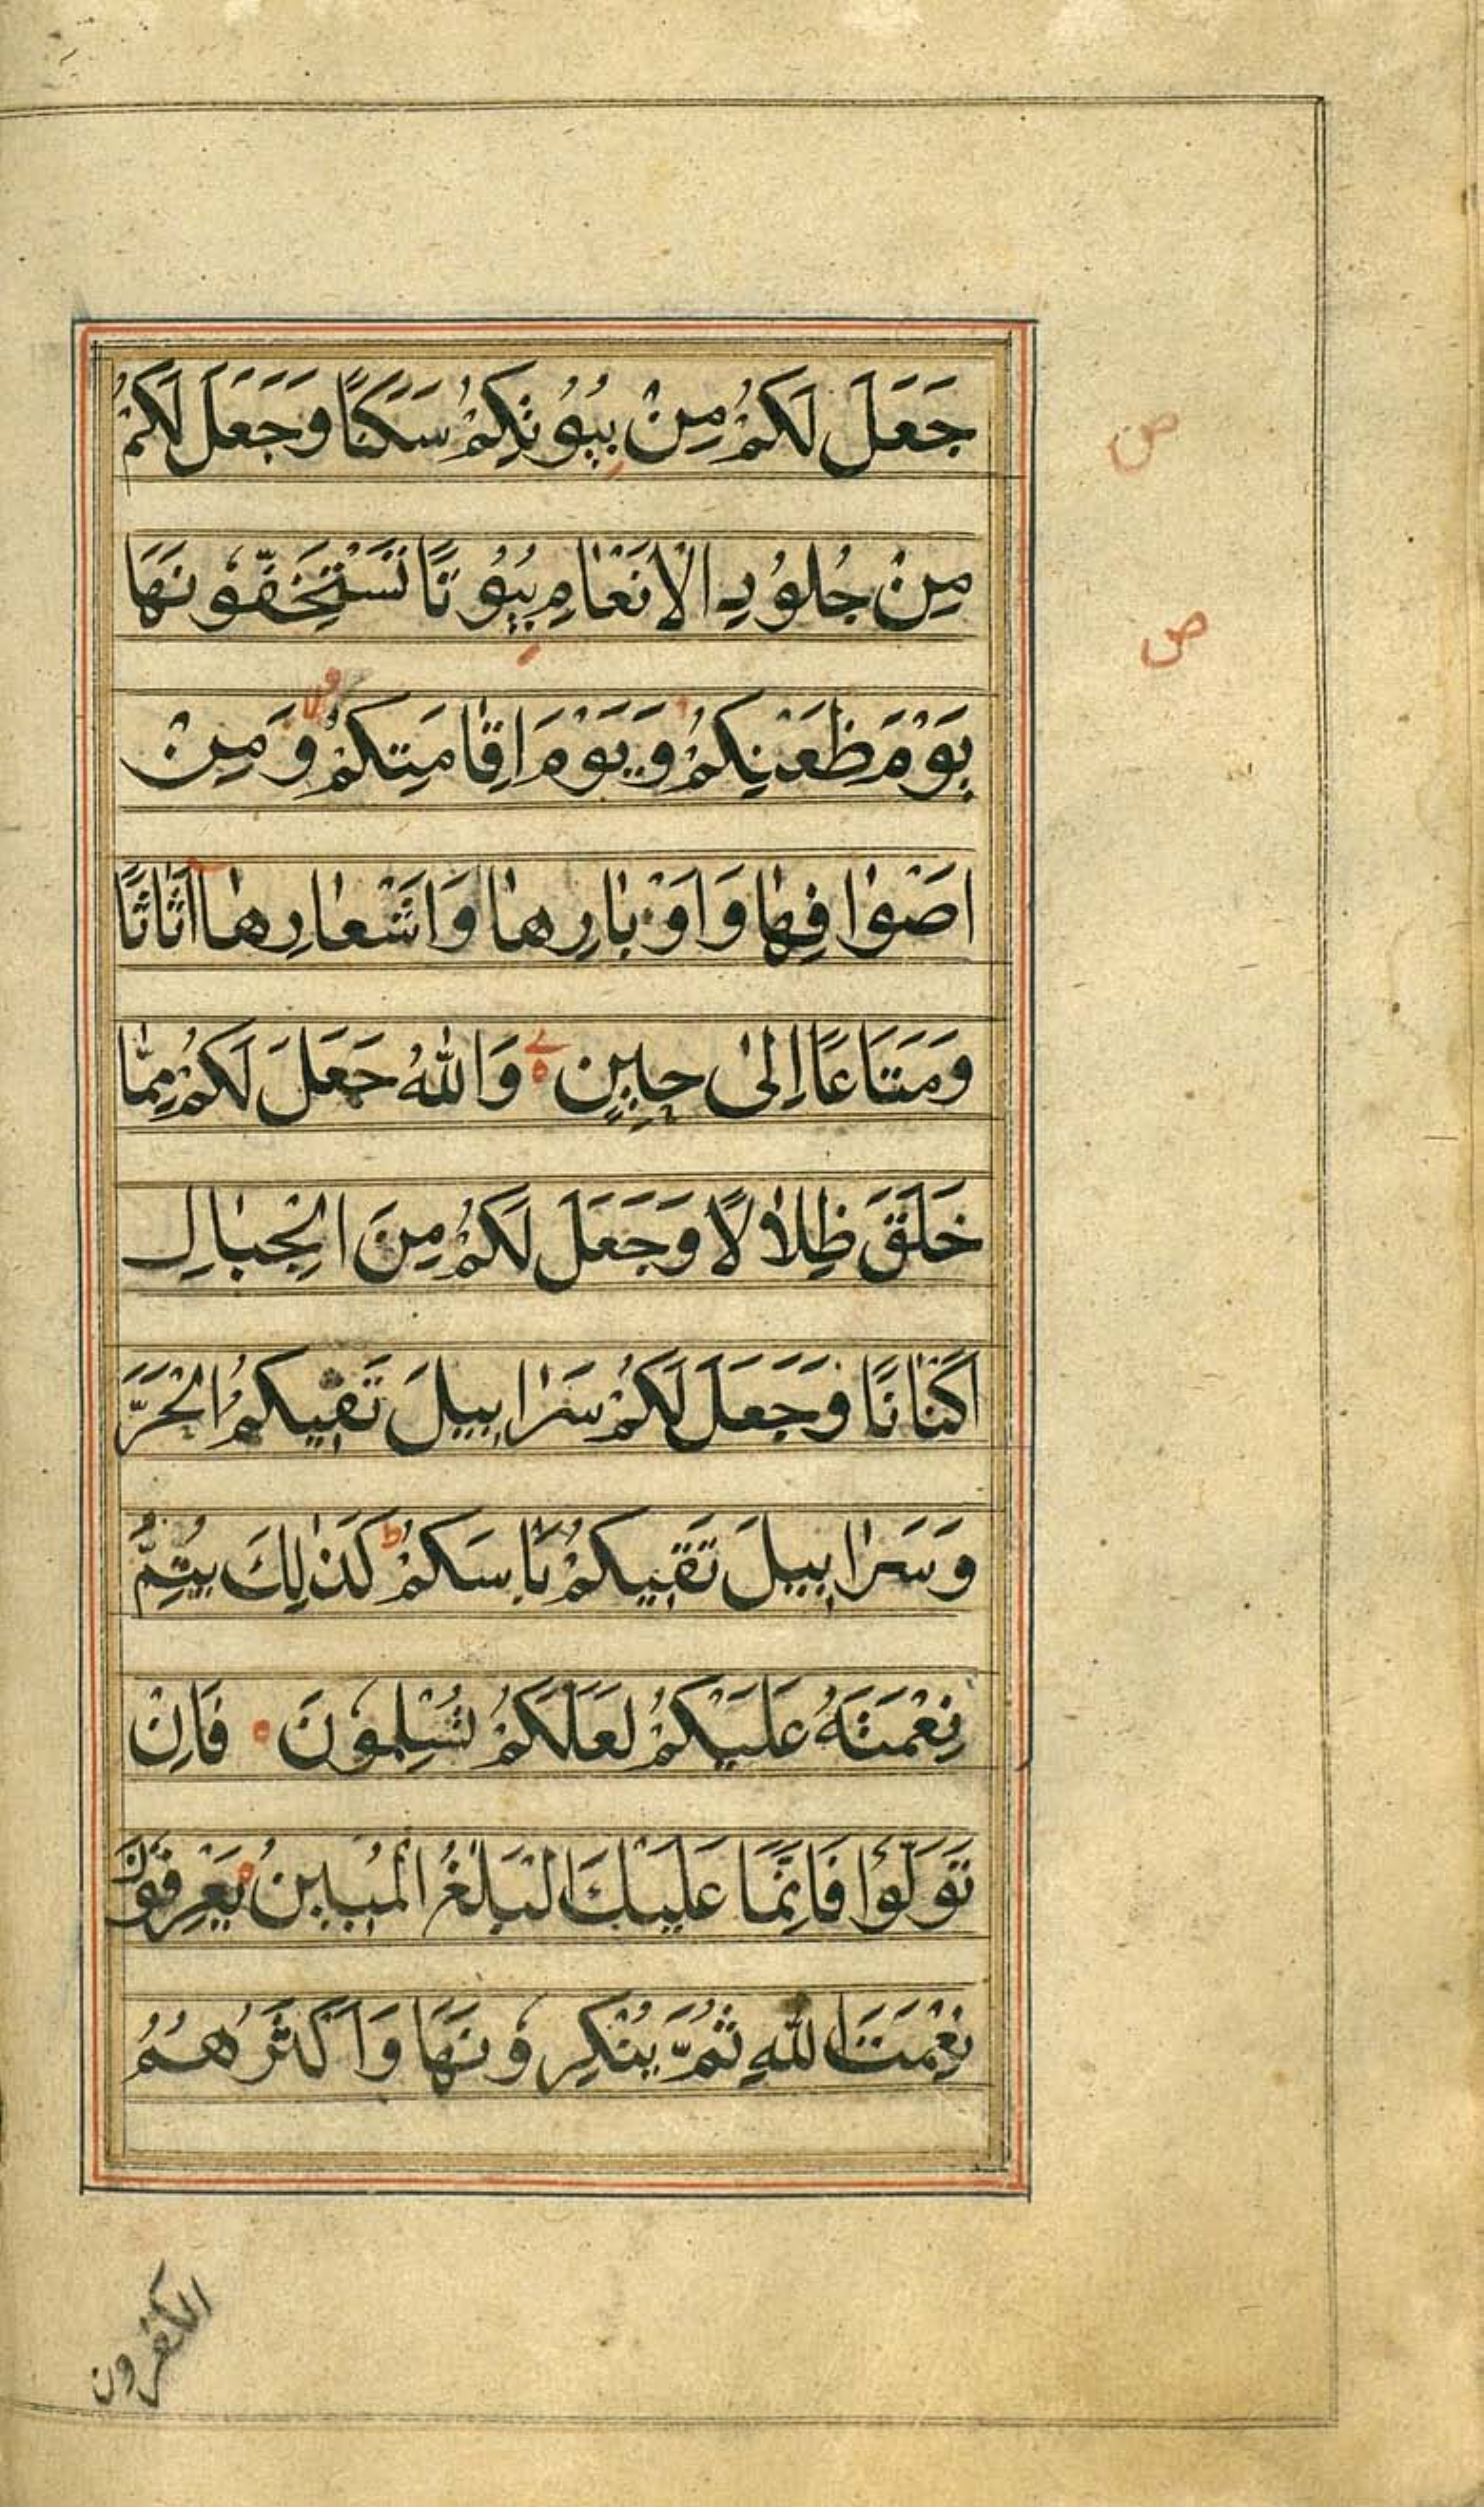 جَعَلَ لَكُمْ مِنْ بُيُوتِكُمْ سَكَنًا وَجَعَلَ لَكُمْ
مِنْ جُلُودِ الْاَنْعَامِ بُيُوتًا تَسْتَخِفُّونَهَا
يَوْمَ ظَعْنِكُمْ وَيَوْمَ اِقَامَتِكُمْ وَمِنْ
اَصْوَافِهَا وَاَوْبَارِهَا وَاَشْعَارِهَا اَثَاثًا
وَمَتَاعًا اِلىٰ حِينٍ وَاللهُ جَعَلَ لَكُمْ مِمَّا
خَلَقَ ظِلَالًا وَجَعَلَ لَكُمْ مِنَ الْجِبَالِ
اَكْنَانًا وَجَعَلَ لَكُمْ سَرَابِيلَ تَقِيكُمُ الْحَرَّ
وَسَرَابِيلَ تَقِيكُمْ بَاْسَكُمْ ط كَذٰلِكَ يُتِمُّ
نِعْمَتَهُ عَلَيْكُمْ لَعَلَّكُمْ تُسْلِمُونَ فَاِنْ
تَوَلَّوْا فَاِنَّمَا عَلَيْكَ الْبَلٰغُ الْمُبِينُ يَعْرِفُونَ
نِعْمَتَ اللهِ ثُمَّ يُنْكِرُونَهَا وَاَكْثَرُهُمُ
الكفرون
ص
ص